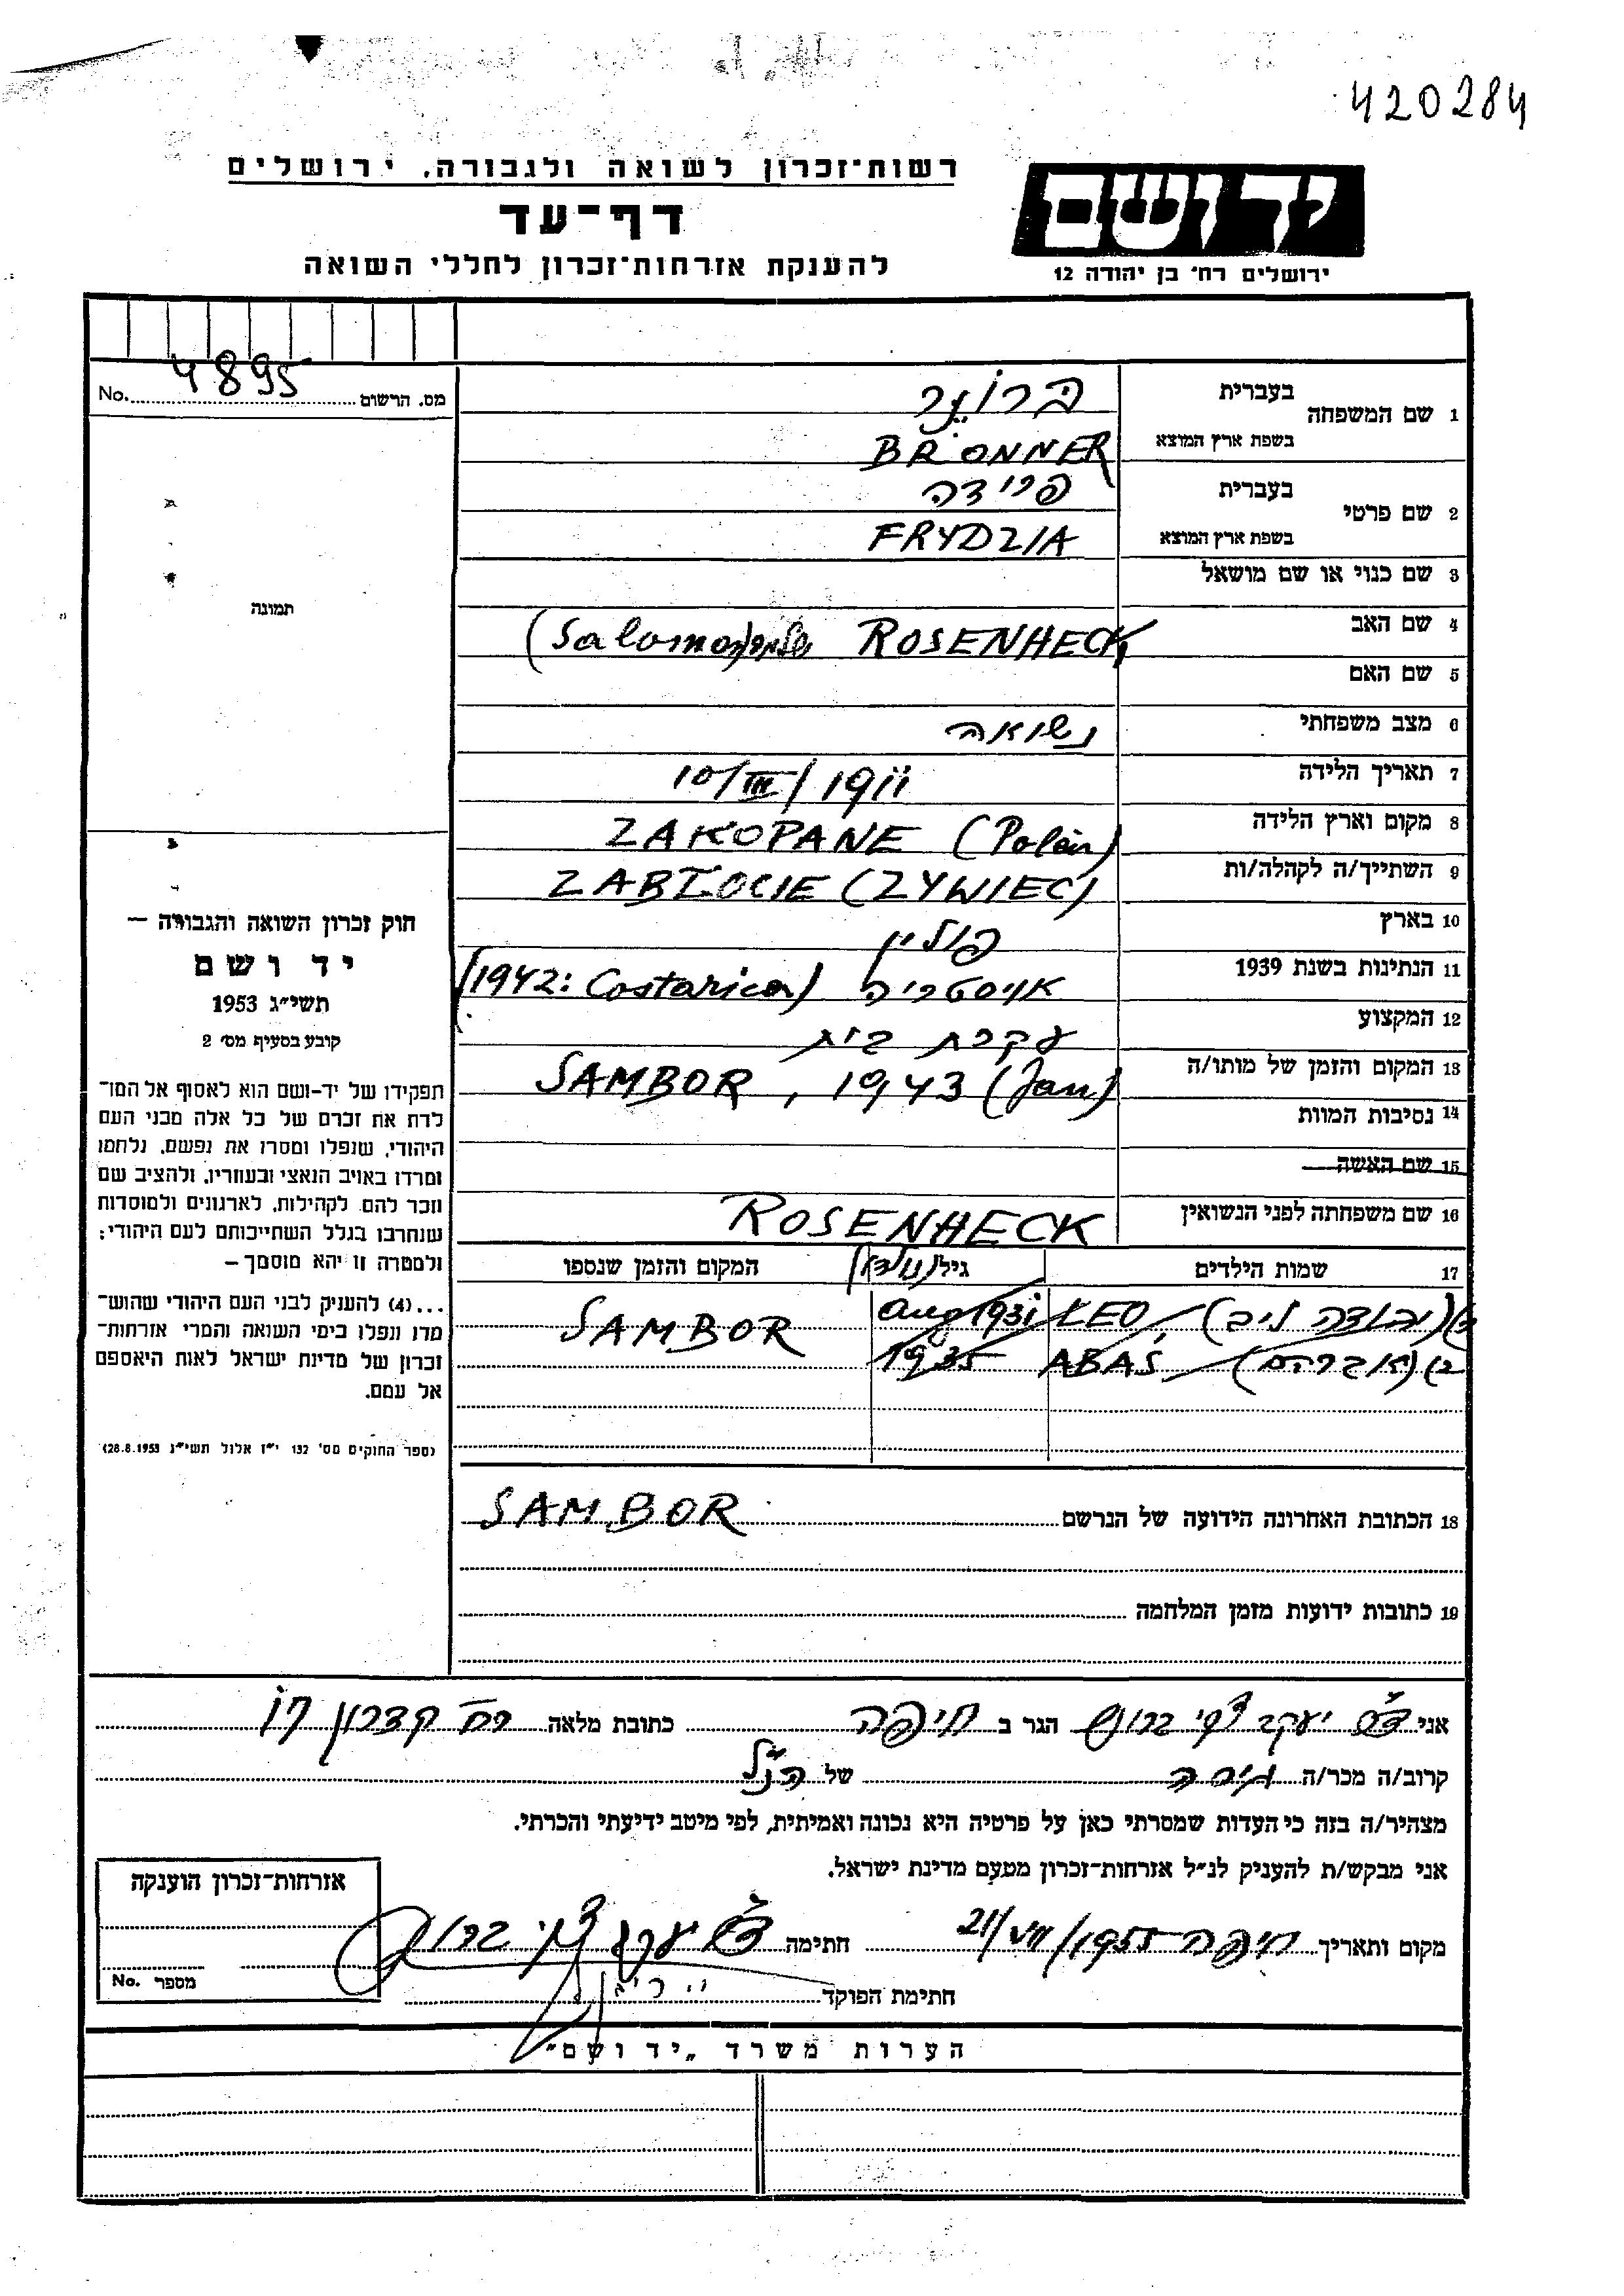 420284
רשות־זכרון לשואה ולגבורה. ירושלים
דף־עד
להענקת אזרחות־זכרון לחללי השואה
יד ושם
ירושלים רח' בן יהודה 12
No. 4895 מס. הרשום
תמונה
חוק זכרון השואה והגבורה —
יד ושם
תשי״ג 1953
קובע בסעיף מס׳ 2
תפקידו של יד-ושם הוא לאסוף אל המו־
לדת את זכרם של כל אלה מבני העם
היהודי, שנפלו ומסרו את נפשם, נלחמו
ומרדו באויב הנאצי ובעוזריו, ולהציב שם
וזכר להם לקהילות, לארגונים ולמוסדות
שנחרבו בגלל השתייכותם לעם היהודי;
ולמטרה זו יהא מוסמך —
...(4) להעניק לבני העם היהודי שהוש־
מדו ונפלו בימי השואה והמרי אזרחות־
זכרון של מדינת ישראל לאות היאספם
אל עמם.
(ספר החוקים מס׳ 132 י״ז אלול תשי״ג 28.8.1953)
1 שם המשפחה
בעברית ברונר
בשפת ארץ המוצא BRONNER
2 שם פרטי
בעברית פרידה
בשפת ארץ המוצא FRYDZIA
3 שם כנוי או שם מושאל
4 שם האב ROSENHECK (Salomon
5 שם האם
6 מצב משפחתי נשואה
7 תאריך הלידה 10/III/1911
8 מקום וארץ הלידה ZAKOPANE (Polen)
9 השתייך/ה לקהלה/ות ZABŁOCIE (ZYWIEC)
10 בארץ פולין
11 הנתינות בשנת 1939 אוסטריה (1942: Costarica)
12 המקצוע עקרת בית
13 המקום והזמן של מותו/ה SAMBOR, 1943 (Jan)
14 נסיבות המוות
15 שם האשה
16 שם משפחתה לפני הנשואין ROSENHECK
17 שמות הילדים גיל המקום והזמן שנספו
(יהודה ליב) LEO aug 1931 SAMBOR
(אברהם) ABAS 1935
18 הכתובת האחרונה הידועה של הנרשם SAMBOR
19 כתובות ידועות מזמן המלחמה
אני יעקב צבי הגר ב חיפה כתובת מלאה רח קדרון
קרוב/ה מכר/ה של הנ״ל
מצהיר/ה בזה כי העדות שמסרתי כאן על פרטיה היא נכונה ואמיתית, לפי מיטב ידיעתי והכרתי.
אני מבקש/ת להעניק לנ״ל אזרחות־זכרון מטעם מדינת ישראל.
מקום ותאריך חיפה 21/VII/1955 חתימה
חתימת הפוקד
אזרחות־זכרון הוענקה
מספר No.
הערות משרד „יד ושם״